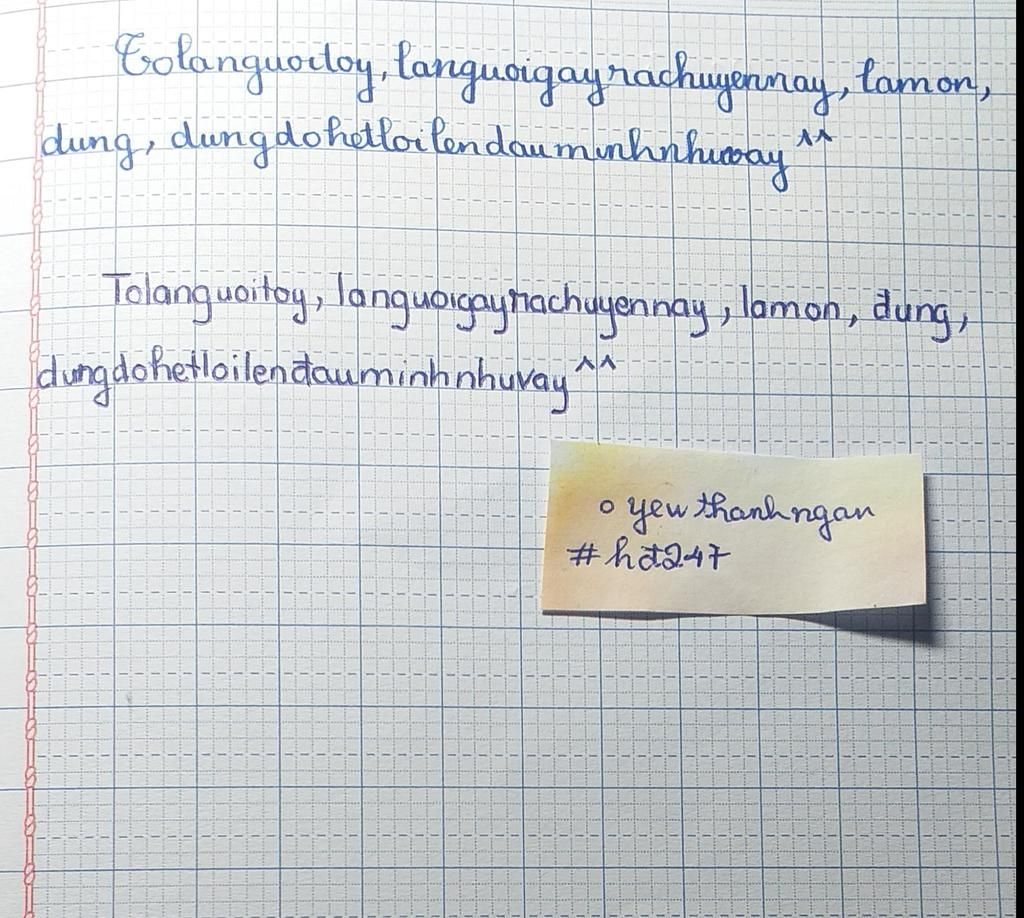 Tolanguoitoy, languoigayrachuyennay, lamon,
dung, dungdohetloilendauminhnhuvay^^
Tolanguoitoy, languoigayrachuyennay, lamon, dung,
dungdohetloilendauminhnhuvay^^
o yewthanhngan
#hđt247